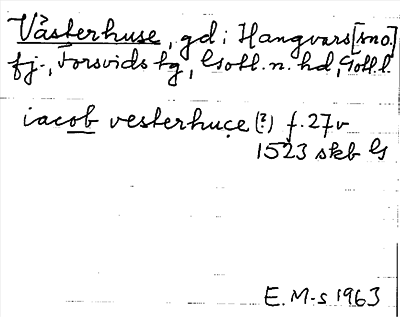 Västerhuse, gd i Hangvars [sno.]
fj., Forsvids tg, Gotl. n. hd, Gotl. l.
iacob vesterhuce (?) f. 27v
1523 skb G
E. M-s 1963